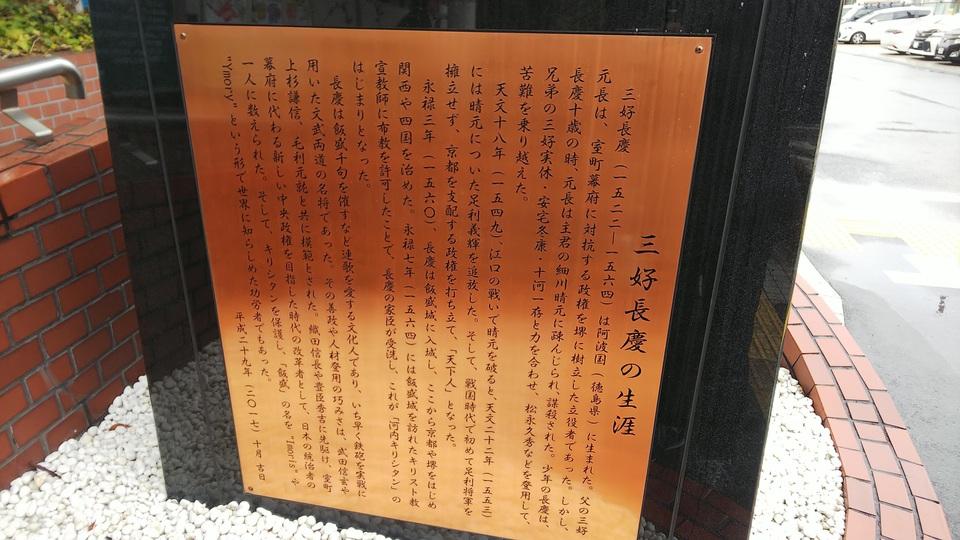 三好長慶の生涯
三好長慶（一五二二―一五六四）は阿波国（徳島県）に生まれた。父の三好
元長は、室町幕府に対抗する政権を堺に樹立した立役者であった。しかし、
長慶十歳の時、元長は主君の細川晴元に疎んじられ、謀殺された。少年の長慶は、
兄弟の三好実休・安宅冬康・十河一存と力を合わせ、松永久秀などを登用して、
苦難を乗り越えた。
天文十八年（一五四九）、江口の戦いで晴元を破ると、天文二十二年（一五五三）
には晴元についた足利義輝を追放した。そして、戦国時代で初めて足利将軍を
擁立せず、京都を支配する政権を打ち立て、「天下人」となった。
永禄三年（一五六〇）、長慶は飯盛城に入城し、ここから京都や堺をはじめ
関西や四国を治めた。永禄七年（一五六四）には飯盛城を訪れたキリスト教
宣教師に布教を許可したことで、長慶の家臣が受洗し、これが「河内キリシタン」の
はじまりとなった。
長慶は飯盛千句を催すなど連歌を愛する文化人であり、いち早く鉄砲を実戦に
用いた文武両道の名将であった。その善政や人材登用の巧みさは、武田信玄や
上杉謙信、毛利元就と共に模範とされた。織田信長や豊臣秀吉に先駆け、室町
幕府に代わる新しい中央政権を目指した時代の改革者として、日本の統治者の
一人に数えられた。そして、キリシタンを保護し、「飯盛」の名を “Imoris” や
“Ymory” という形で世界に知らしめた功労者でもあった。
平成二十九年（二〇一七）十月吉日